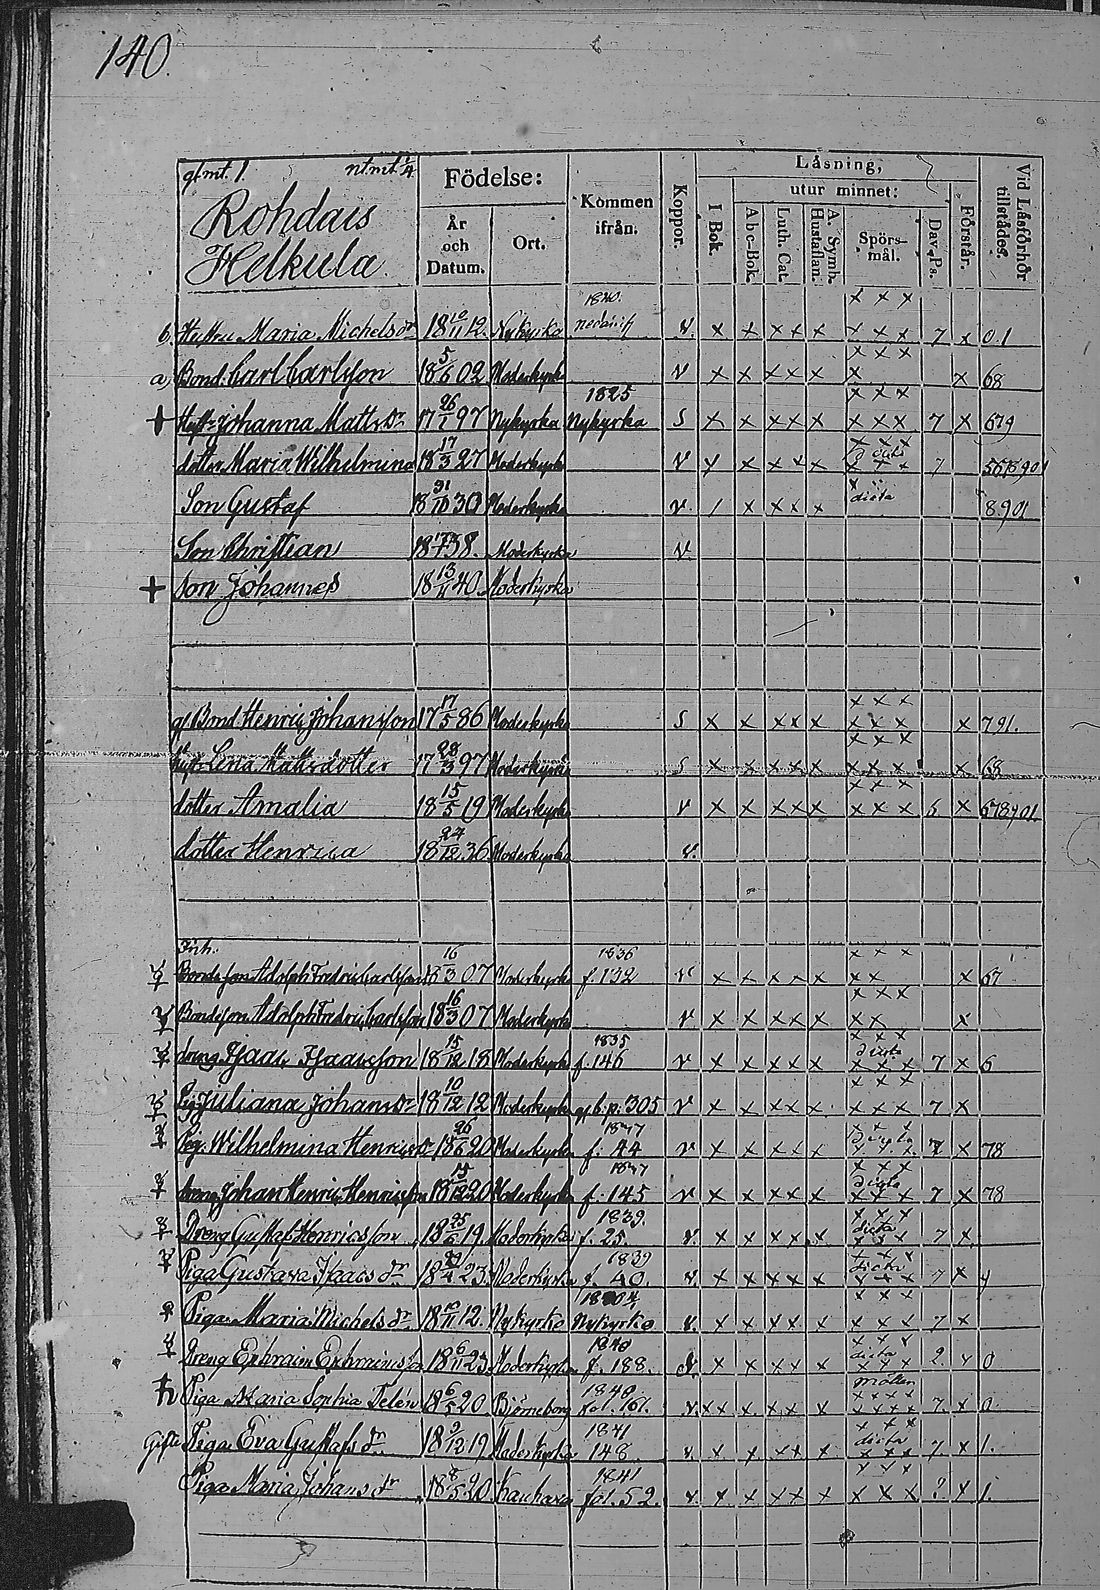 140.
gl. mt. 1. nt. mt. 1/4
Rohdais
Helkula.
Födelse:
År och Datum.
Ort.
Kommen ifrån.
Koppor.
Läsning,
I Bok.
utur minnet:
Abc-Bok.
Luth. Cat.
A. Symb. Hustaflan.
Spörsmål.
Dav. Ps.
Förstår.
Vid Läsförhör tillstädes.
x x x
b, Hustru Maria Michelsdr 18 10/11 12. Nykyrka 1840. v. x x x x x x x x x 7 x 0.1
x x x
a, Bond. Carl Carlsson 18 5/6 02 Moderkyrka v x x x x x x x 68
x x x
+ Hust. Johanna Mattsdr 17 26/1 97 Nykyrka 1825 Nykyrka S x x x x x x x x 7 x 679
x x x
dotter Maria Wilhelmina 18 17/3 27 Moderkyrka v x x x x x x x x 7
Son Gustaf 18 31/10 30 Moderkyrka v. / x x x x dicta 8901
Son Christian 18 38. Moderkyrka v.
+ Son Johannes 18 13/11 40. Moderkyrka
x x x
gl. Bond. Henric Johansson 17 17/5 86 Moderkyrka S x x x x x x x x x 791.
x x x
hust. Lena Mattsdotter 17 28/3 97 Moderkyrka S x x x x x x x x x 68
x x x
dotter Amalia 18 15/5 19 Moderkyrka v x x x x x x x x x 678901
dotter Henrica 18 24/12 36 Moderkyrka v.
Inh.
x x x
Bondeson Adolph Fredric Carlsson 18 16/3 07 Moderkyrka 1836 f. 132 v x x x x x x x x 67
x x x
Bondeson Adolph Fredric Carlsson 18 16/3 07 Moderkyrka v x x x x x x x x
x x x
dräng Isaac Isaacsson 18 15/12 18 Moderkyrka 1835 f. 146 v x x x x x dicta x x x 7 x 6
x x x
Pig. Juliana Johansdr 18 10/12 12 Moderkyrka gl. b. p. 305 v x x x x x x x x 7 x
x x x
Pig. Wilhelmina Henricsdr 18 26/6 20 Moderkyrka f. 44 v x x x x x dicta x x x 7 x 78
x x x
dreng Johan Henric Henricsson 18 15/12 20 Moderkyrka f. 145 v x x x x x dicta x x x 7 x 78
x x x
Dreng Gustaf Henricsson 18 25/6 19. Moderkyrka 1839. f. 25. v. x x x x x dicta x x x 7 x
x x x
Piga Gustava Isaacsdr 18 23. Moderkyrka 1839 f. 40. v. x x x x x dicta x x x 7 x
x x x
Piga Maria Michelsdr 18 10/11 12. Nykyrko Nykyrko v. x x x x x x x x 7 x
x x x
Dreng Ephraim Ephraimsson 18 6/11 23. Moderkyrka 1840 f. 188. v. x x x x x dicta x x x 2. x 0
x x x x
Piga Maria Sophia Telén 18 6/5 20. Björneborg 1840 fol. 161. v. x x x x x x x x x x 7. x 0.
x x x
Gifte Piga Eva Gustafsdr 18 9/12 19 Moderkyrka 1841 148. v x x x x x dicta x x x 7. x 1.
x x x
Piga Maria Johansdr 18 8/5 20. 1841 fol. 52. v x x x x x x x x ? x 1.